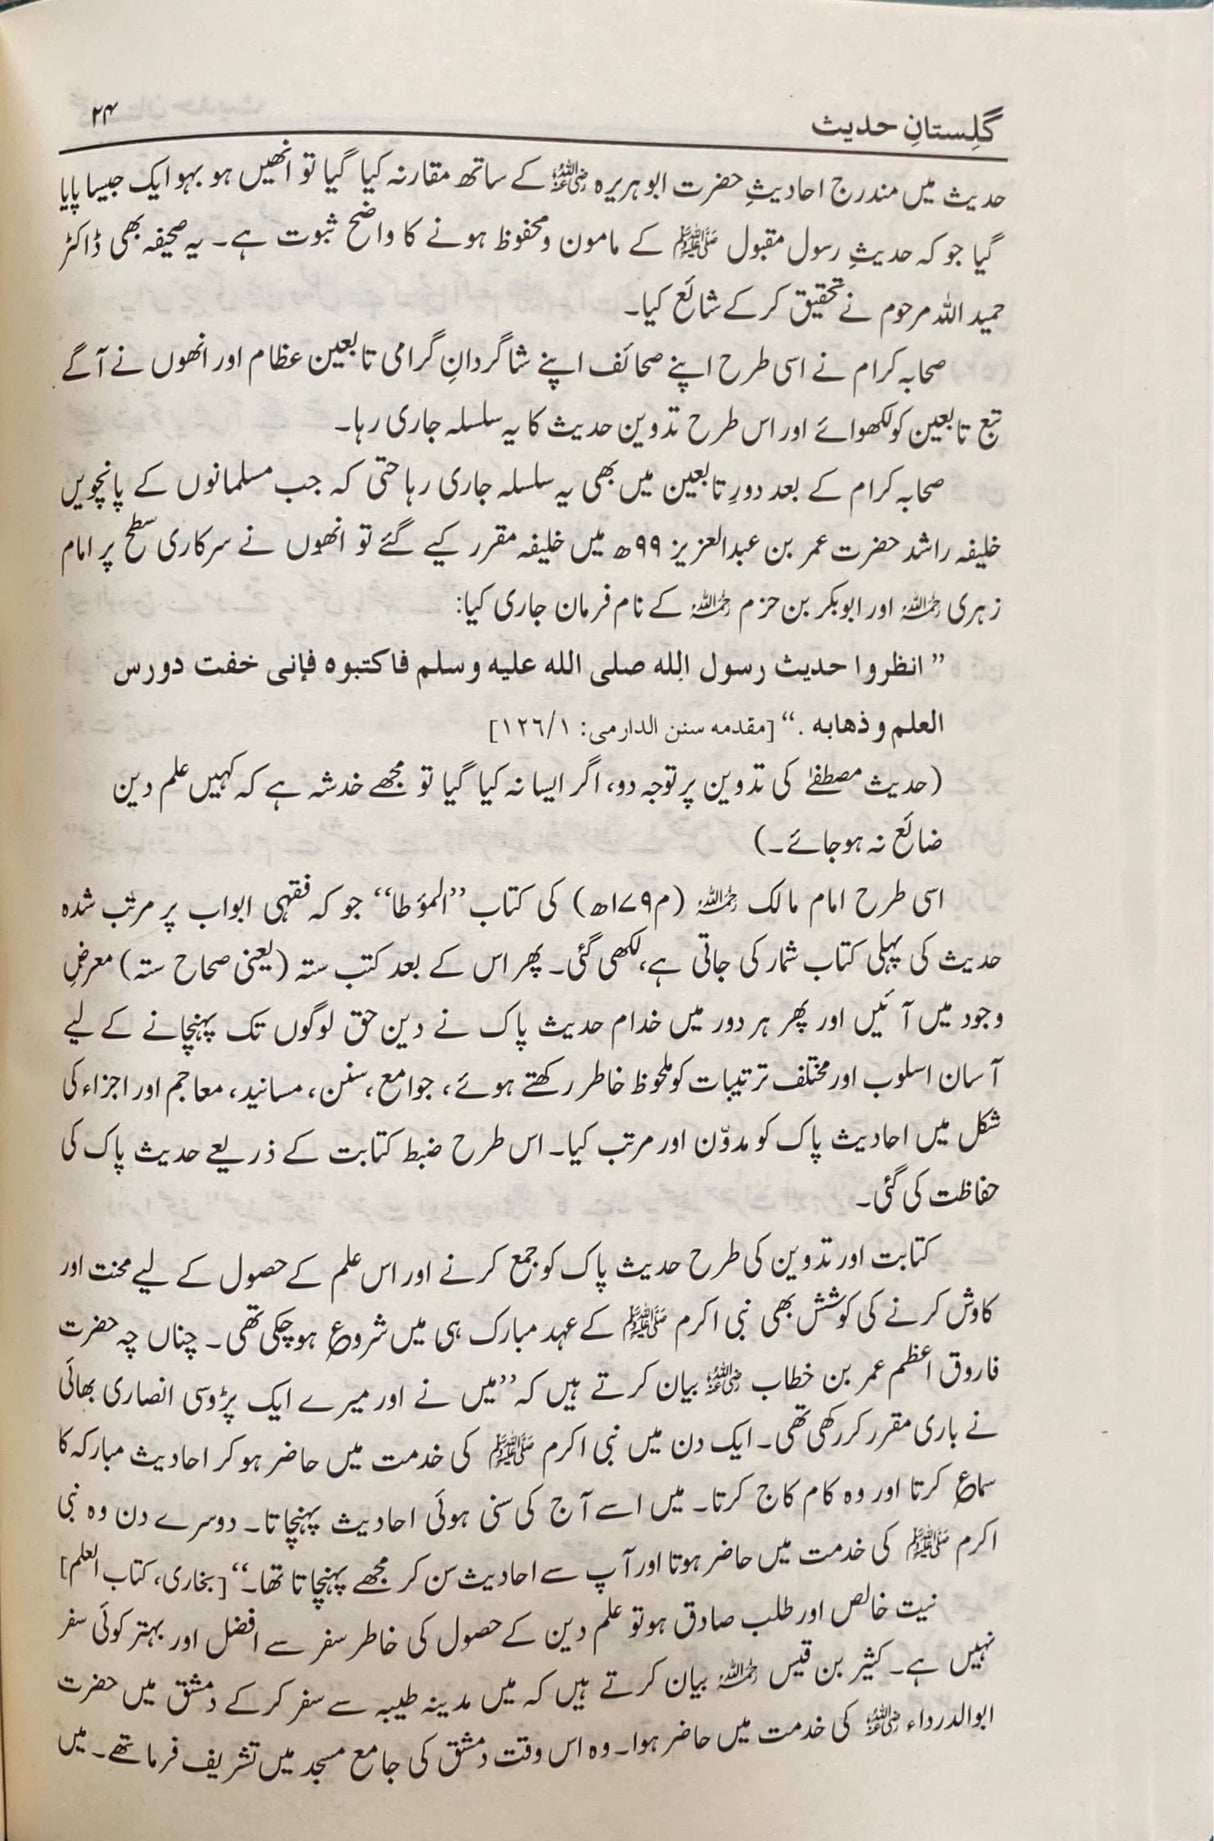 گلِستانِ حدیث
۲۴
حدیث میں مندرج احادیثِ حضرت ابوہریرہ رضی اللہ عنہ کے ساتھ مقارنہ کیا گیا تو انھیں ہو بہو ایک جیسا پایا
گیا جو کہ حدیثِ رسول مقبول ﷺ کے مامون ومحفوظ ہونے کا واضح ثبوت ہے۔ یہ صحیفہ بھی ڈاکٹر
حمید اللہ مرحوم نے تحقیق کر کے شائع کیا۔
صحابہ کرام نے اسی طرح اپنے صحائف اپنے شاگردانِ گرامی تابعین عظام اور انھوں نے آگے
تبع تابعین کو لکھوائے اور اس طرح تدوین حدیث کا یہ سلسلہ جاری رہا۔
صحابہ کرام کے بعد دورِ تابعین میں بھی یہ سلسلہ جاری رہا حتی کہ جب مسلمانوں کے پانچویں
خلیفہ راشد حضرت عمر بن عبدالعزیز ۹۹ھ میں خلیفہ مقرر کیے گئے تو انھوں نے سرکاری سطح پر امام
زہری رحمہ اللہ اور ابوبکر بن حزم رحمہ اللہ کے نام فرمان جاری کیا:
’’ انظروا حديث رسول الله صلى الله عليه وسلم فاكتبوه فإنى خفت دورس
العلم وذهابه .‘‘ [مقدمه سنن الدارمى: ١٢٦/١]
(حدیث مصطفےٰ کی تدوین پر توجہ دو، اگر ایسا نہ کیا گیا تو مجھے خدشہ ہے کہ کہیں علم دین
ضائع نہ ہو جائے۔)
اسی طرح امام مالک رحمہ اللہ (م۱۷۹ھ) کی کتاب ’’المؤطا‘‘ جو کہ فقہی ابواب پر مرتب شدہ
حدیث کی پہلی کتاب شمار کی جاتی ہے، لکھی گئی۔ پھر اس کے بعد کتب ستہ (یعنی صحاح ستہ) معرضِ
وجود میں آئیں اور پھر ہر دور میں خدام حدیث پاک نے دین حق لوگوں تک پہنچانے کے لیے
آسان اسلوب اور مختلف ترتیبات کو ملحوظ خاطر رکھتے ہوئے، جوامع، سنن، مسانید، معاجم اور اجزاء کی
شکل میں احادیث پاک کو مدوّن اور مرتب کیا۔ اس طرح ضبط کتابت کے ذریعے حدیث پاک کی
حفاظت کی گئی۔
کتابت اور تدوین کی طرح حدیث پاک کو جمع کرنے اور اس علم کے حصول کے لیے محنت اور
کاوش کرنے کی کوشش بھی نبی اکرم ﷺ کے عہد مبارک ہی میں شروع ہو چکی تھی۔ چناں چہ حضرت
فاروق اعظم عمر بن خطاب رضی اللہ عنہ بیان کرتے ہیں کہ ’’میں نے اور میرے ایک پڑوسی انصاری بھائی
نے باری مقرر کر رکھی تھی۔ ایک دن میں نبی اکرم ﷺ کی خدمت میں حاضر ہو کر احادیث مبارکہ کا
سماع کرتا اور وہ کام کاج کرتا۔ میں اسے آج کی سنی ہوئی احادیث پہنچاتا۔ دوسرے دن وہ نبی
اکرم ﷺ کی خدمت میں حاضر ہوتا اور آپ سے احادیث سن کر مجھے پہنچاتا تھا۔‘‘ [بخاری، کتاب العلم]
نیت خالص اور طلب صادق ہو تو علم دین کے حصول کی خاطر سفر سے افضل اور بہتر کوئی سفر
نہیں ہے۔ کثیر بن قیس رحمہ اللہ بیان کرتے ہیں کہ میں مدینہ طیبہ سے سفر کر کے دمشق میں حضرت
ابوالدرداء رضی اللہ عنہ کی خدمت میں حاضر ہوا۔ وہ اس وقت دمشق کی جامع مسجد میں تشریف فرما تھے۔ میں